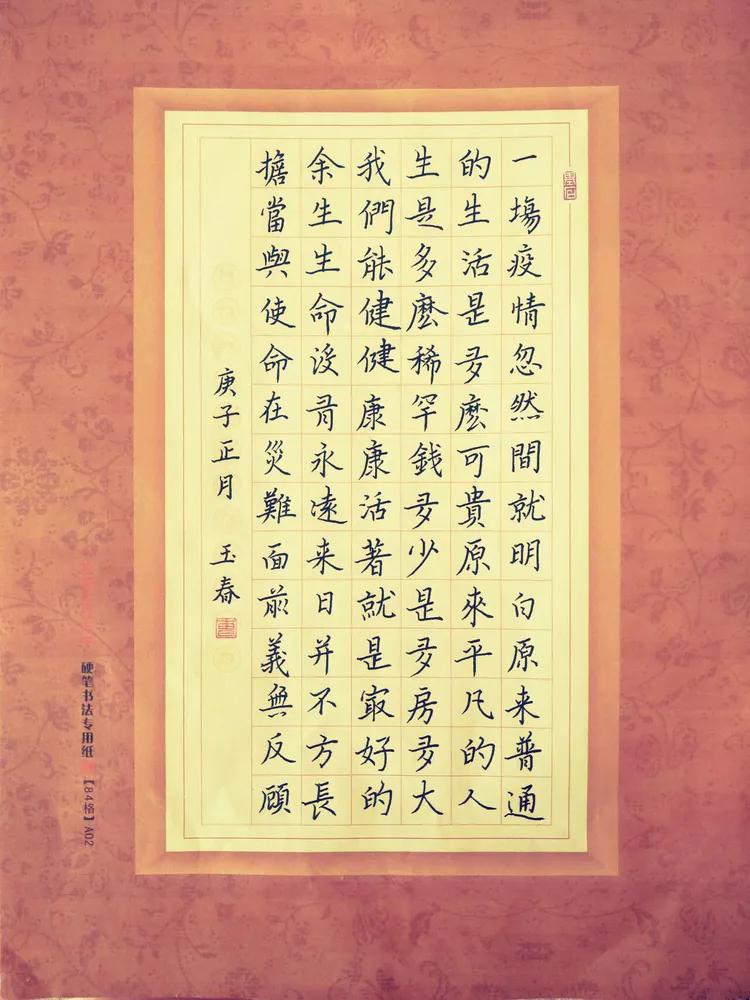 一塲疫情忽然間就明白原来普通
的生活是多麽可貴原來平凡的人
生是多麽稀罕錢多少是多房多大
我們能健健康康活著就是最好的
余生生命沒有永遠来日并不方長
擔當與使命在災難面前義無反顧
庚子正月 玉春
硬笔书法专用纸 【84格】A02